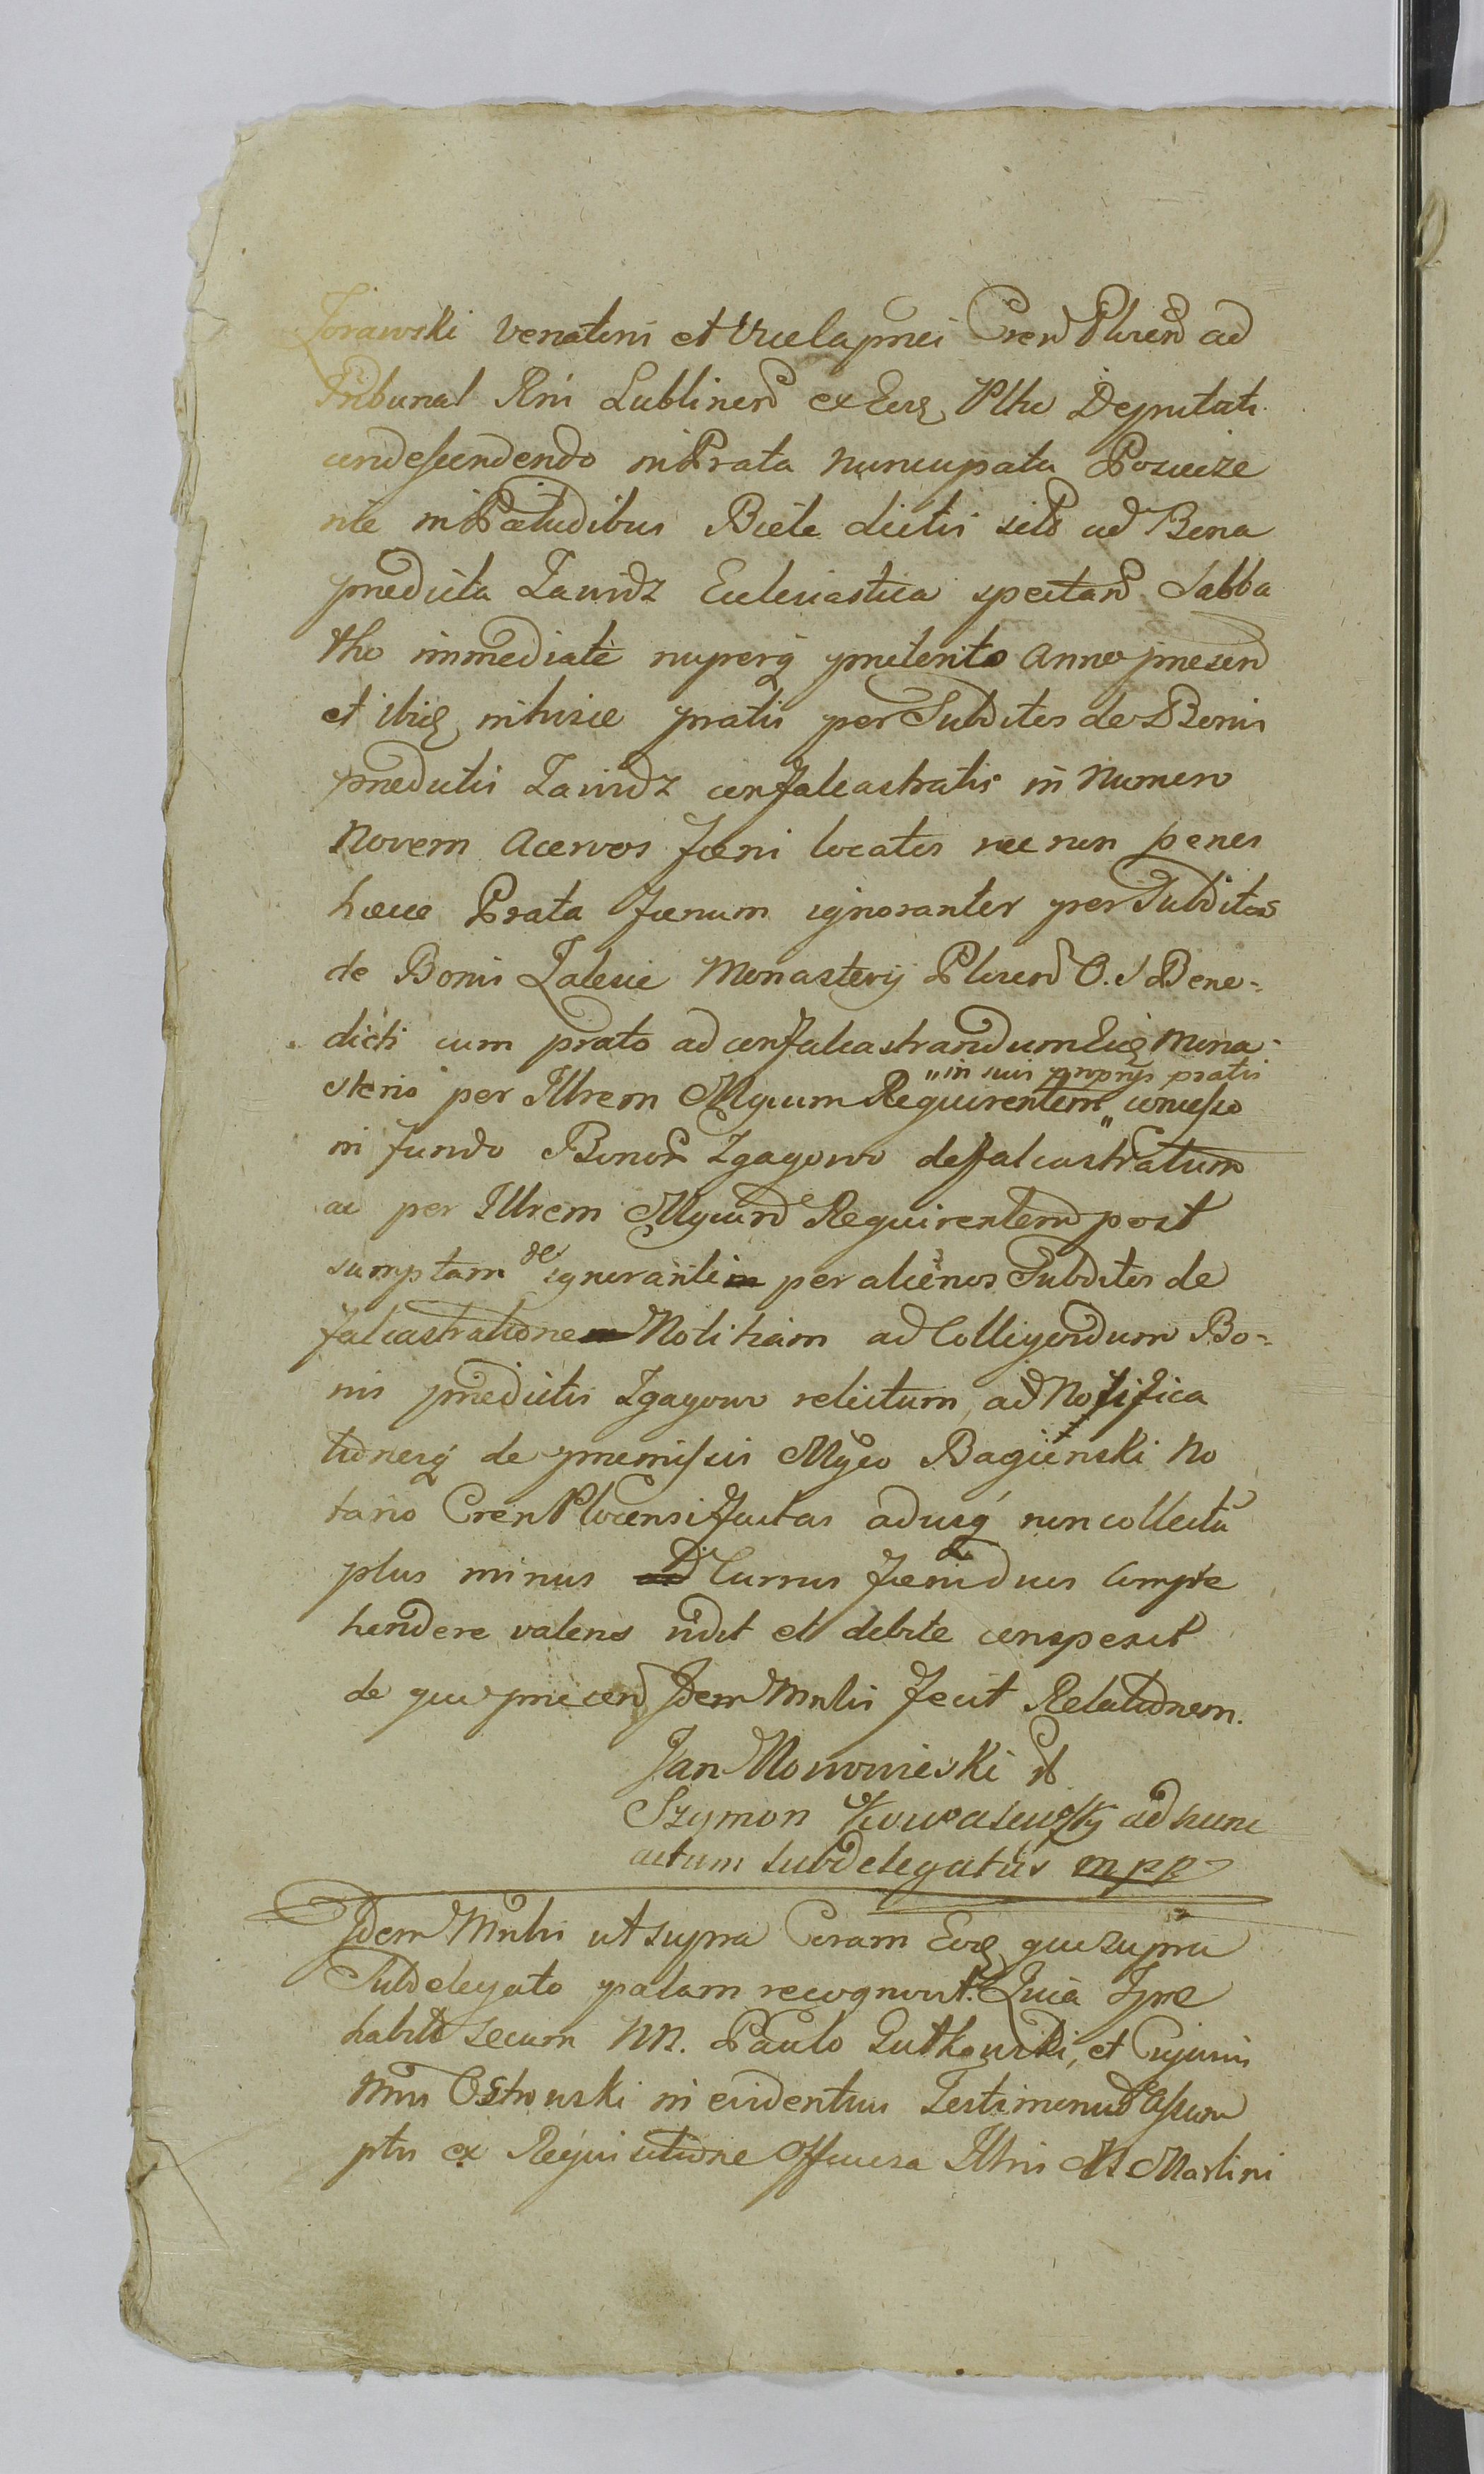 Zorawski Venatoris et Vicecapnei Cren Plocen ad
Tribunal Rni Lublinen ex Eodq Pltu Deputati
condescendendo in Prata nuncupata Poswieze
nie in Paludibus Biele dictis sitis ad Bona
predicta Zawidz Ecclesiastica spectan Sabba
tho immediate nuperq preterito anno presen
et ibidq in hisce pratis per Subditos de Bonis
predictis Zawidz confalcastratis in Numero
Novem acervos foeni locatos nec non penes
haecce Prata foenum ignoranter per Subditos
de Bonis Zalesie Monasterij Plocen O. S Bene=
dicti cum prato ad confalcastrandum Eidq Mona=
sterio per Illrem Mgcum Requirentem "in suis proprijs pratis" concesso
in fundo Bonor Zgagowo defalcastratum
ac per Illrem Mgcum Requirentem post
sumptam de ignoranti per alienos Subditos de
falcastratione Notitiam ad Colligendum Bo=
nis predictis Zgagowo relictum, ad Notifica
tionesq de premissis Mgco Bagienski No
tario Cren Plocensi factas adusq non collectu
plus minus Currus foeni duos compre
hendere valens vidit et debite conspexit
de quo precen Idem Mnlis fecit Relationem.
Jan Nowowieski
Szymon Kowalewsky ad hunc
actum Subdelegatus mpp
Idem Mnlis ut supra Coram Eodq quo supra
Subdelegato palam recognovit. Quia Ipse
habitis secum NN. Paulo Gutkowski, et Cujusvis
Mnis Ostrowski in evidentius Testimonium assum
ptis ex Requisitione Officiosa Illris M Martini